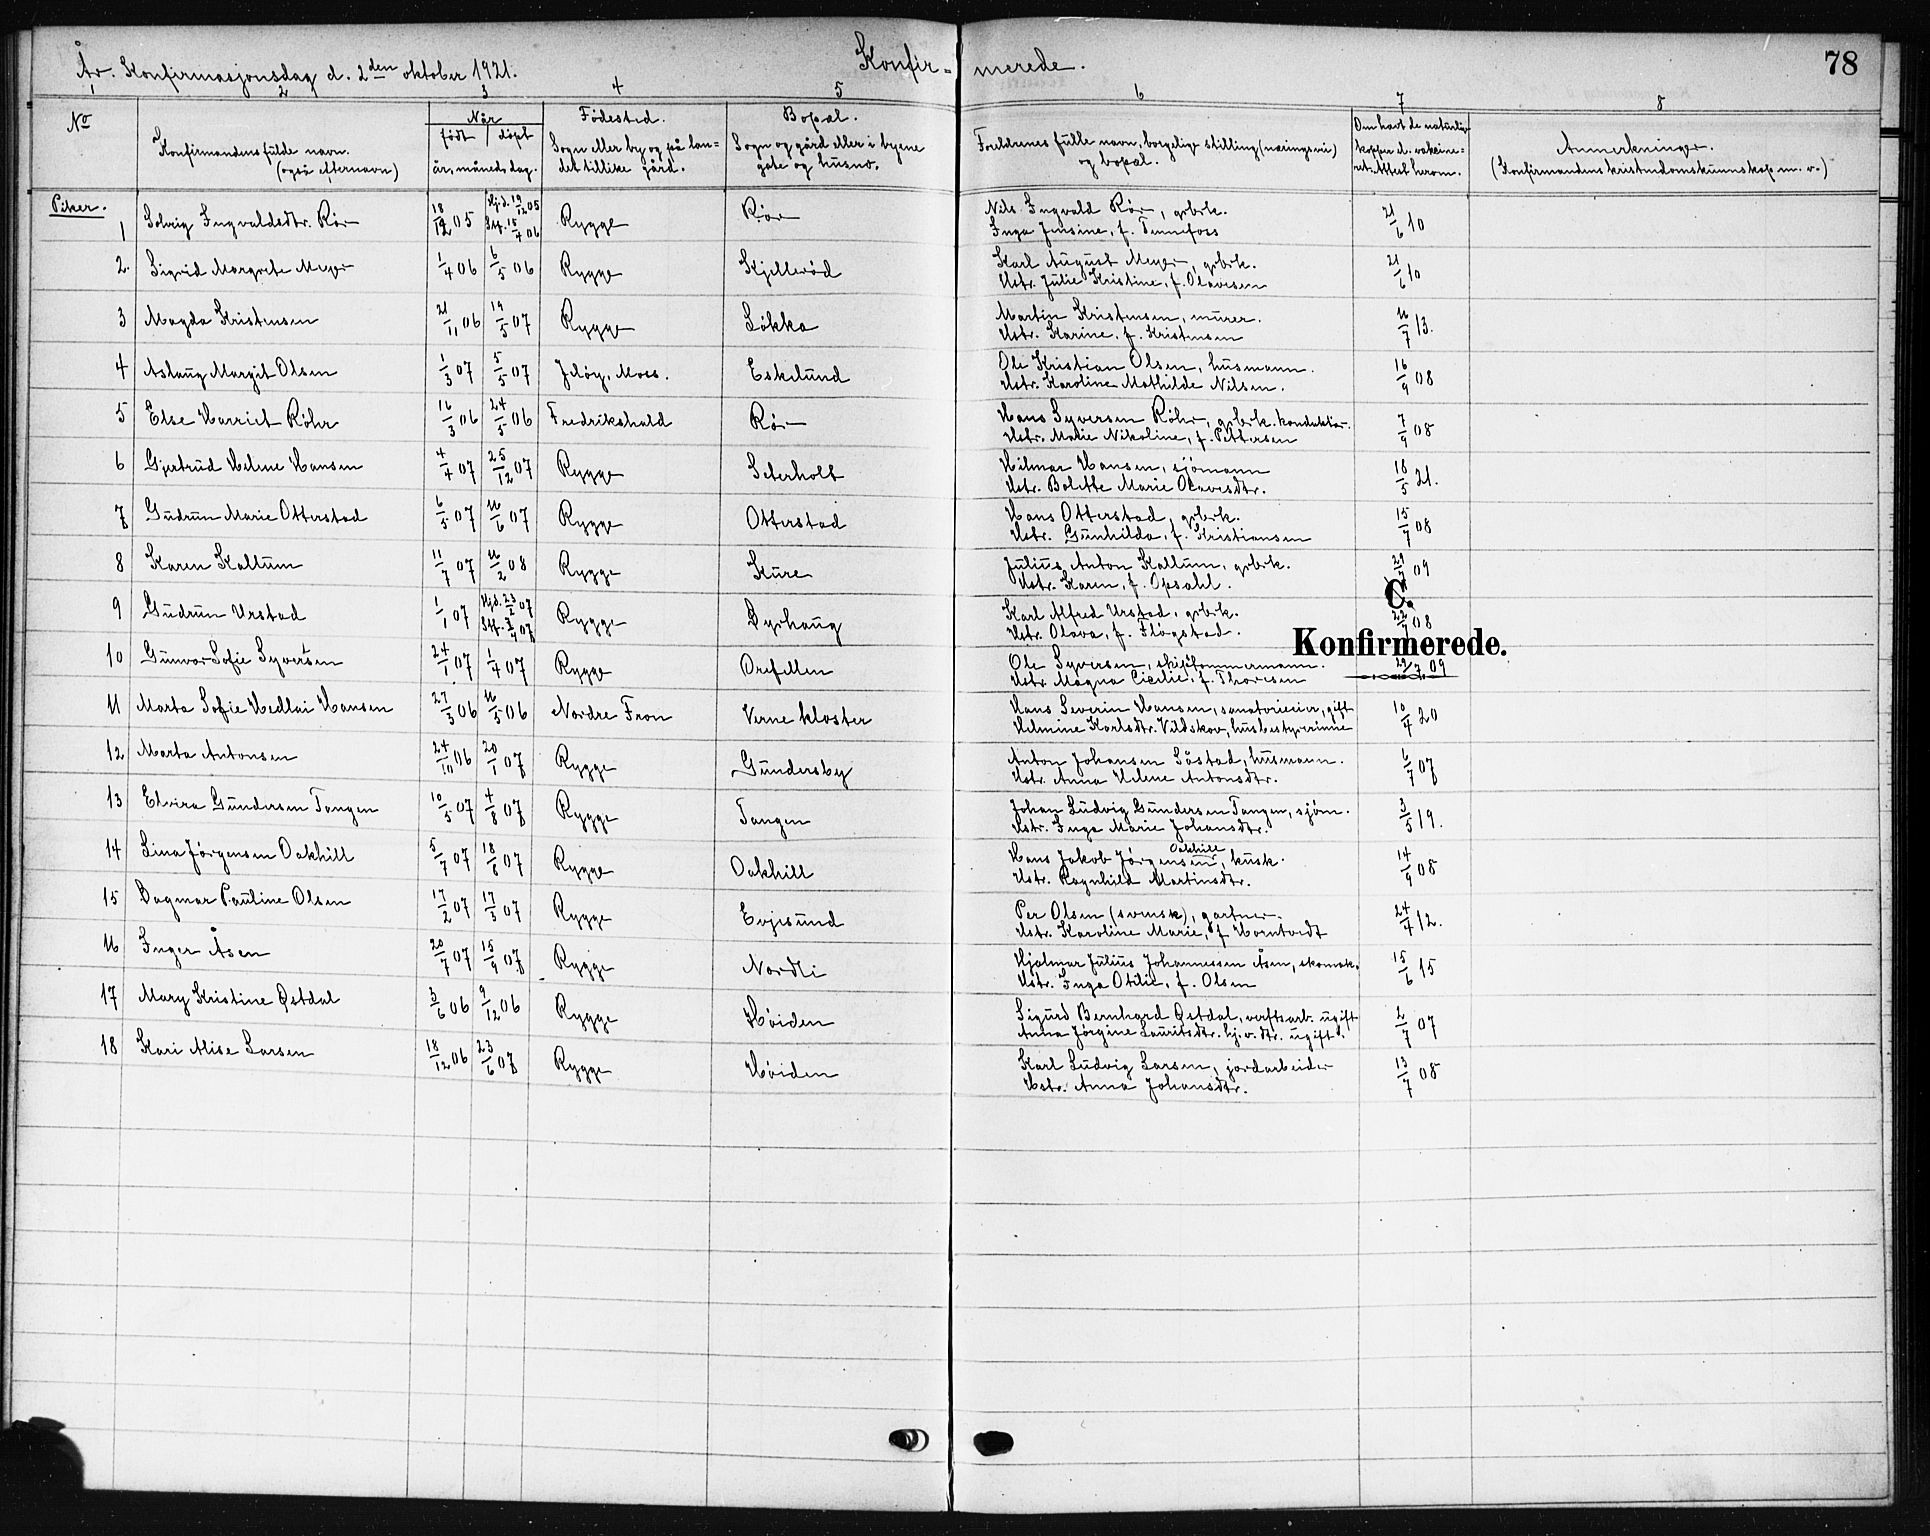 Konfir- merede. 78
År. Konfirmasjonsdag d. 2den oktober 1921.
1 2 3 4 5 6 7 8
No
Konfirmandens fulde navn.
(også efternavn)
Når
født / døpt
år, måned, dag.
Fødested.
Sogn eller by og på lan=
det tillike gård.
Bopæl.
Sogn og gård eller i byene
gate og husno.
Foreldrenes fulle navn, borgelige stilling (næringsvei)
og bopæl.
Om havt de naturlige
kopper el. vakcine-
ret. Attest herom.
Anmerkninger.
(Konfirmandens kristendomskunnskap m. v.)
Piker.
1 Solveig Ingvaldsdtr. Rør 18/12 05 Hj.d. 19/12 05 Stf. 15/4 06 Rygge Rør Nils Ingvald Rør, grbrk. 21/6 10
Inga Jensine, f. Tennefoss
2. Sigrid Margrete Meyer 1/4 06 6/5 06 Rygge Kjellerød Karl August Meyer, grbrk. 21/6 10
Ustr. Julie Kristine, f. Olavesen
3 Magda Kristensen 21/11 06 19/5 07 Rygge Løkka Martin Kristensen, murer. 16/7 13.
Ustr. Karine, f. Kristensen
4 Aslaug Margit Olsen 1/3 07 5/5 07 Jeløy, Moss. Eskelund Ole Kristian Olsen, husmann. 16/9 08
Ustr. Karoline Mathilde Nilsen.
5 Else Harriet Røhr 16/3 06 24/5 06 Fredrikshald Rør Hans Syversen Røhr, grbrk. konduktør. 7/9 08
Ustr. Malie Nikoline, f. Pettersen
6 Gjertrud Helene Hansen 4/4 07 25/12 07 Rygge Seterholt Hilmar Hansen, sjømann 18/5 21.
Ustr. Bolette Marie Olavesdtr.
7 Gudrun Marie Otterstad 6/5 07 16/6 07 Rygge Otterstad Hans Otterstad, grbrk. 15/7 08
Ustr. Gunhilda, f. Kristiansen
8 Karen Kallum 11/7 07 16/2 08 Rygge Kure Julius Anton Kallum, grbrk. 09
Ustr. Karen, f. Opsahl.
C.
9 Gudrun Urstad 1/1 07 Hjd. 23/2 07 Stf. 07 Rygge Dyrhaug Karl Alfred Urstad, grbrk. 22/7 08
Ustr. Olava, f. Fløgstad.
Konfirmerede.
10 Gunvor Sofie Syversen 24/1 07 1/4 07 Rygge Orefellen Ole Syversen, skipstømmermann. 09
Ustr. Magna Cicilie, f. Thoresen
11 Marta Sofie Hedlai Hansen 27/3 06 16/5 06 Nordre Fron Verne kloster Hans Severin Hansen, sanatorieeier, gift 10/4 20
Helmine Karlsdtr. Vildskov, husbestyrerinne
12 Marta Antonsen 24/10 06 20/1 07 Rygge Gundersby Anton Johansen Såstad, husmann. 6/7 07
Ustr. Anna Helene Antonsdtr.
13 Elvira Gundersen Tangen 10/5 07 4/8 07 Rygge Tangen Johan Ludvig Gundersen Tangen, sjøm. 3/5 19.
Ustr. Inga Marie Johansdtr.
14 Lina Jørgensen Oakhill 5/7 07 18/8 07 Rygge Oakhill Hans Jakob Jørgensen Oakhill, husk. 14/9 08
Ustr. Ragnhild Martinsdtr.
15 Dagmar Pauline Olsen 17/2 07 17/3 07 Rygge Evjesund Per Olsen (svensk), gartner. 24/4 12.
Ustr. Karoline Marie, f. Horntvedt
16 Inger Åsen 20/7 07 15/9 07 Rygge Nordli Hjalmar Julius Johannessen Åsen, skomak. 15/6 15
Ustr. Inga Otilie, f. Olsen
17 Mary Kristine Østdal 3/6 06 9/12 06 Rygge Høiden Sigurd Bernhard Østdal, verftsarb. ugift 2/7 07
Anna Jørgine Lauritsdtr. hj.v. dtr. ugift.
18 Kari Alise Larsen 18/12 06 23/6 07 Rygge Høiden Karl Ludvig Larsen, jordarbeider 13/7 08
Ustr. Anna Johansdtr.